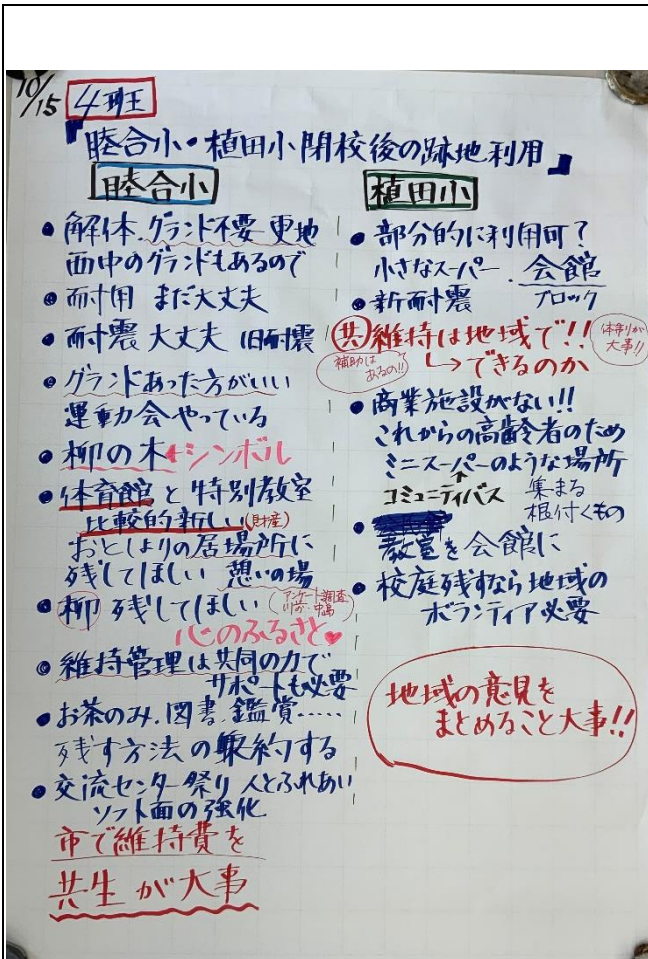 10/15 4班
『睦合小・植田小閉校後の跡地利用』
睦合小
・解体.グランド不要 更地
西中のグランドもあるので
・耐用 まだ大丈夫
・耐震 大丈夫 旧耐震
・グランドあった方がいい
運動会やっている
・柳の木←シンボル
・体育館と特別教室
比較的新しい(財産)
おとしよりの居場所に
残してほしい 憩いの場
・柳 残してほしい (アンケート調査
心のふるさと♥
・維持管理は共同の力で
サポートも必要
・お茶のみ.図書.鑑賞.....
残す方法の集約する
・交流センター祭り 人とふれあい
ソフト面の強化
市で維持費を
共生が大事
植田小
・部分的に利用可?
小さなスーパー.会館
・新耐震 ブロック
共 維持は地域で!!
体制りが
大事!!
補助は
あるの!!
→できるのか
・商業施設がない!!
これからの高齢者のため
ミニスーパーのような場所
↑
コミュニティバス 集まる
根付くもの
・教室を会館に
・校庭残すなら地域の
ボランティア必要
地域の意見を
まとめること大事!!